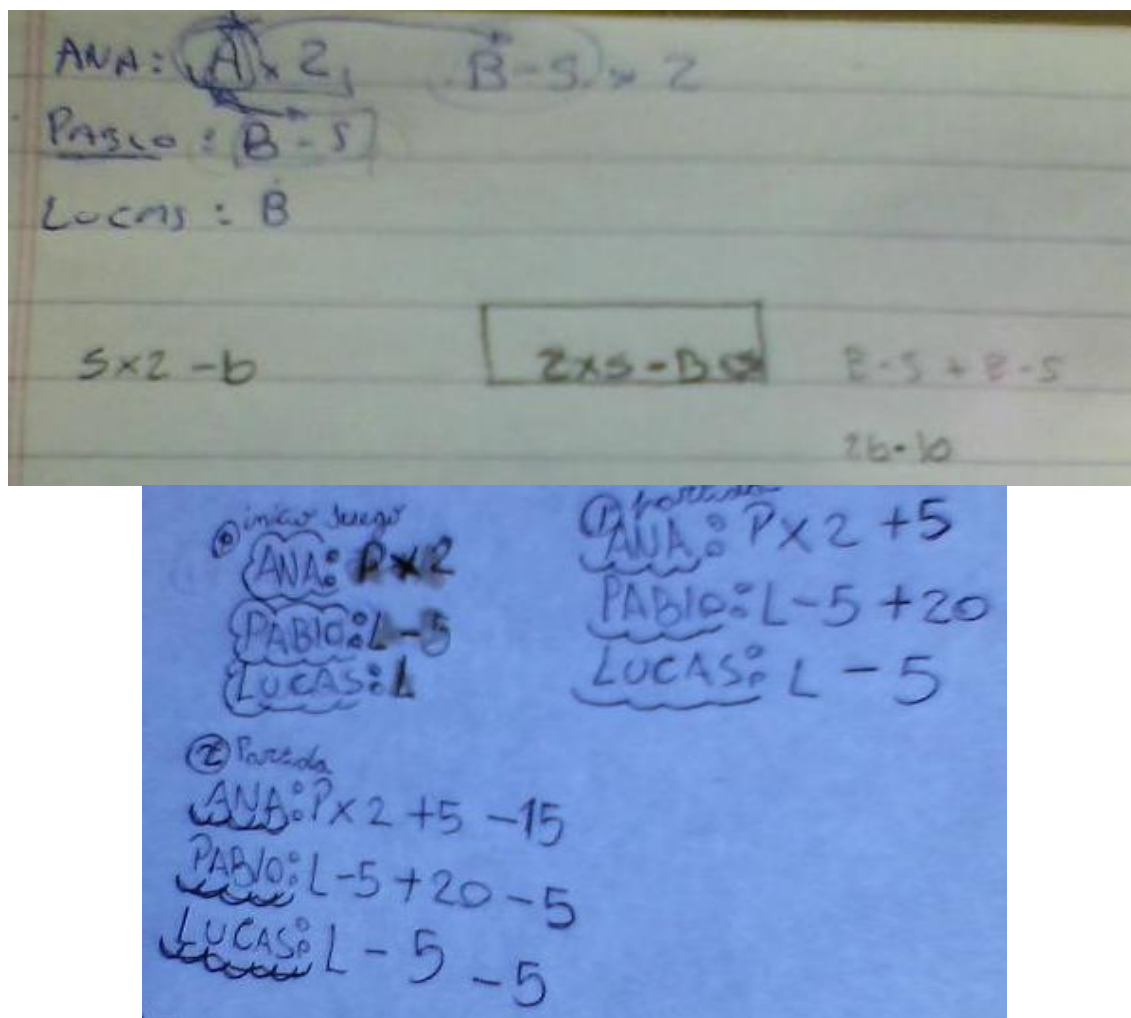 ANA: A x 2, B - 5 x 2
PABLO : B - 5
LUCAS : B
5 x 2 - b 2 x 5 - B B - 5 + B - 5
2b - 10
0 inicio Juego
ANA: P x 2
PABlO: L - 5
LUCAS: L
1 partida
ANA: P x 2 + 5
PABlO: L - 5 + 20
LUCAS: L - 5
2 Partida
ANA: P x 2 + 5 - 15
PABlO: L - 5 + 20 - 5
LUCAS: L - 5 - 5